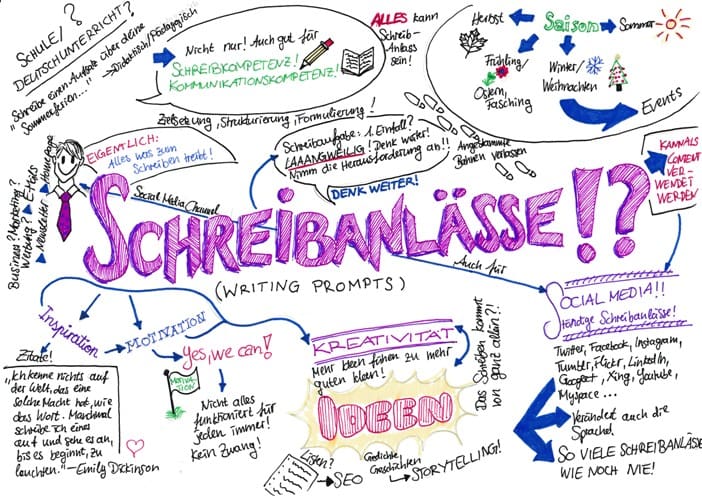 SCHULE/?
DEUTSCHUNTERRICHT?
"Schreibe einen Aufsatz über deine
Sommerferien..."
→ Didaktisch/Pädagogisch
Nicht nur! Auch gut für
SCHREIBKOMPETENZ!
KOMMUNIKATIONSKOMPETENZ!
Zielsetzung, Strukturierung, Formulierung!
ALLES kann
Schreib-
Anlass
sein!
Herbst
Saison
Sommer
Frühling/
Ostern,
Fasching
Winter/
Weihnachten
Events
EIGENTLICH:
Alles was zum
Schreiben treibt!
Schreibaufgabe: 1. Einfall?
LAAANGWEILIG! Denk weiter!
Nimm die Herausforderung an!!
DENK WEITER!
Angestammte
Bahnen verlassen
KANN ALS
CONTENT
VER-
WENDET
WERDEN
Business? Marketing?
Werbung? ▶ E-Mails
▶ Newsletter ▶ Homepage
Social Media Channel
SCHREIBANLÄSSE!?
(WRITING PROMPTS)
Auch für
SOCIAL MEDIA!!
Ständige Schreibanlässe!
Twitter, Facebook, Instagram,
Tumblr, Flickr, LinkedIn,
Google+, Xing, Youtube,
Myspace ...
Verändert auch die
Sprache!
SO VIELE SCHREIBANLÄSSE
WIE NOCH NIE!
Inspiration
MOTIVATION
Yes, we can!
MOTIVA-
TION
Nicht alles
funktioniert für
jeden immer!
Kein Zwang!
Zitate!
"Ich kenne nichts auf
der Welt, das eine
solche Macht hat, wie
das Wort. Manchmal
schreibe ich eines
auf und sehe es an,
bis es beginnt, zu
leuchten." — Emily Dickinson
KREATIVITÄT
Mehr Ideen führen zu mehr
guten Ideen!
IDEEN
Das Schreiben kommt
von ganz allein?!
Listen?
SEO
Gedichte
Geschichten
STORYTELLING!